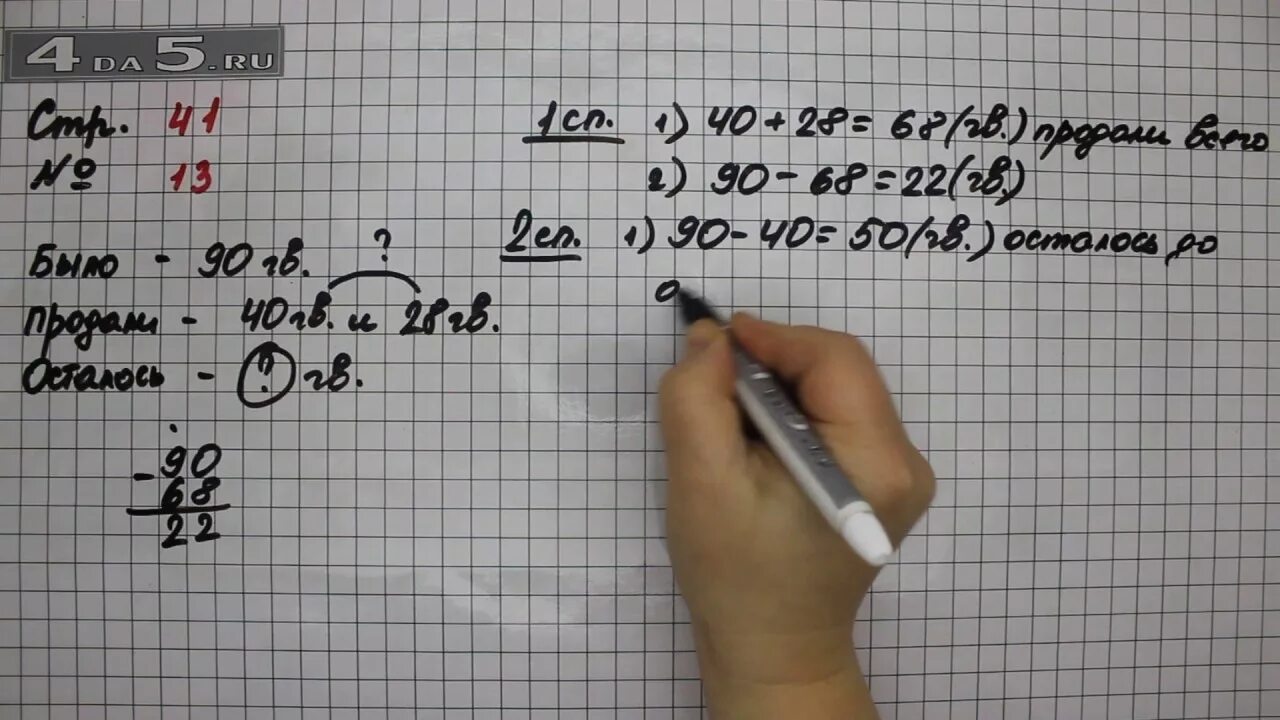 4DA5.RU
Стр. 41
№ 13
Было - 90 гв.
?
продали - 40 гв. и 28 гв.
Осталось - ? гв.
90
- 68
22
1 сп. 1) 40 + 28 = 68 (гв.) продали всего
2) 90 - 68 = 22 (гв.)
2 сп. 1) 90 - 40 = 50 (гв.) осталось до
о